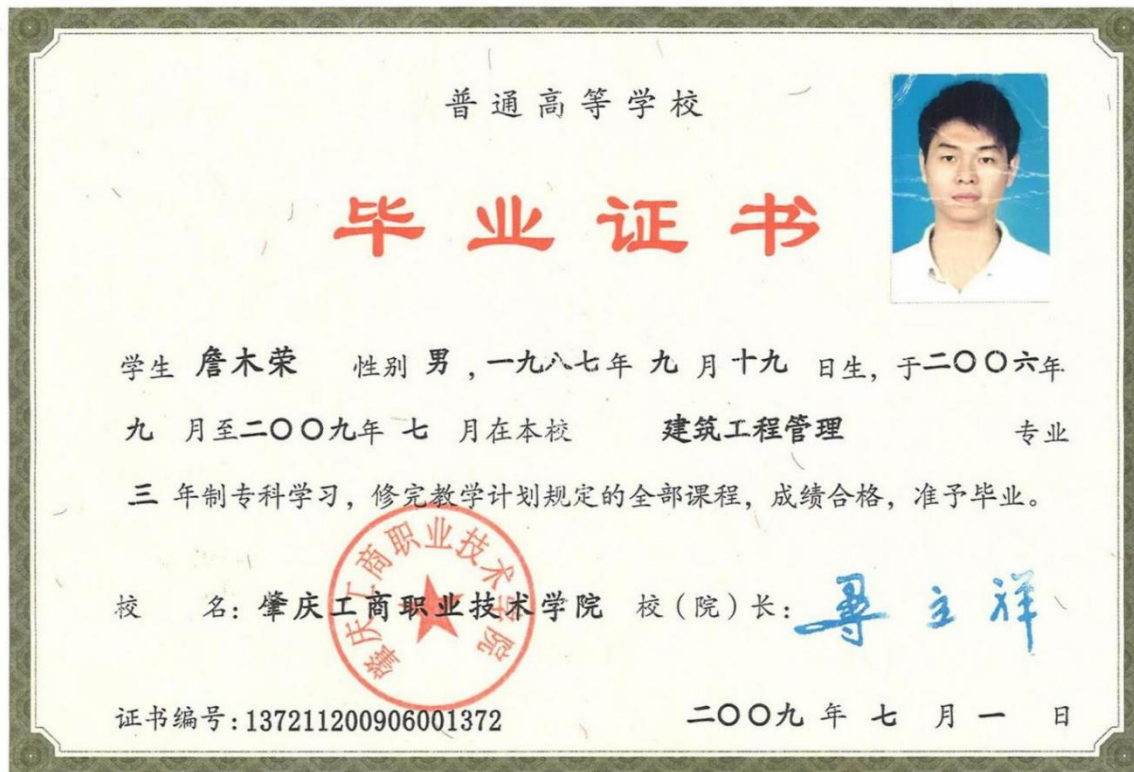 普通高等学校
毕业证书
学生 詹木荣 性别 男，一九八七年 九 月十九 日生，于二〇〇六年
九 月至二〇〇九年 七 月在本校 建筑工程管理 专业
三 年制专科学习，修完教学计划规定的全部课程，成绩合格，准予毕业。
肇庆工商职业技术学院
校 名：肇庆工商职业技术学院 校（院）长：
证书编号：137211200906001372 二〇〇九 年 七 月 一 日